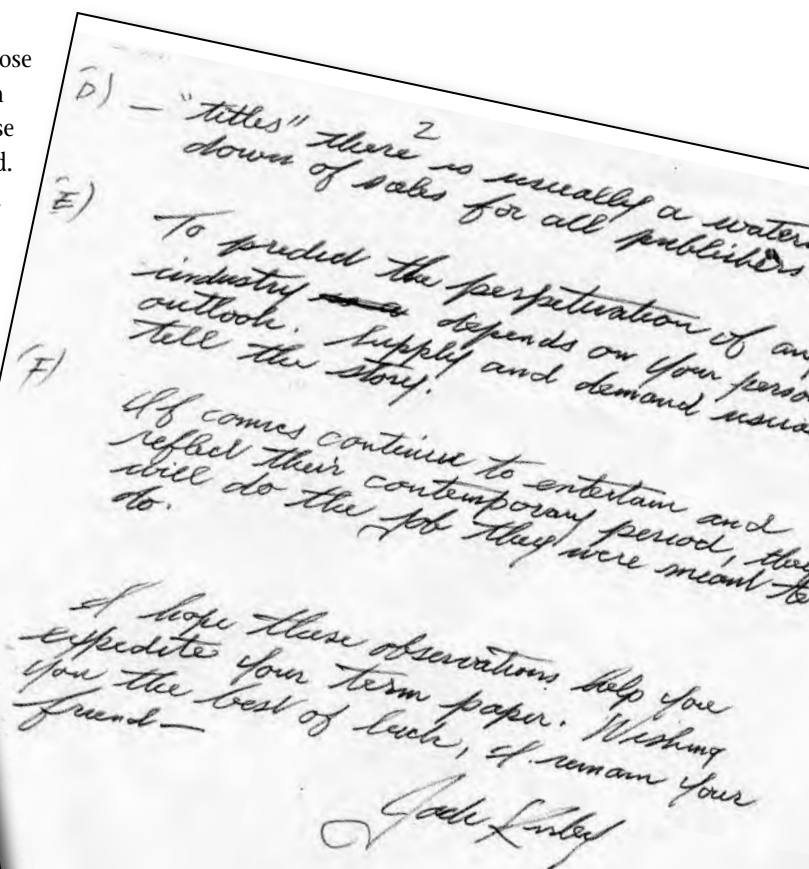 ose
n
se
d.
2
D) — "titles" there is usually a water
down of sales for all publishers
E)
To predict the perpetuation of an
industry depends on your perso
outlook. Supply and demand usua
tell the story.
F)
If comics continue to entertain and
reflect their contemporary period, they
will do the job they were meant to
do.
I hope these observations help you
expedite your term paper. Wishing
you the best of luck, I remain your
friend—
Jack Kirby